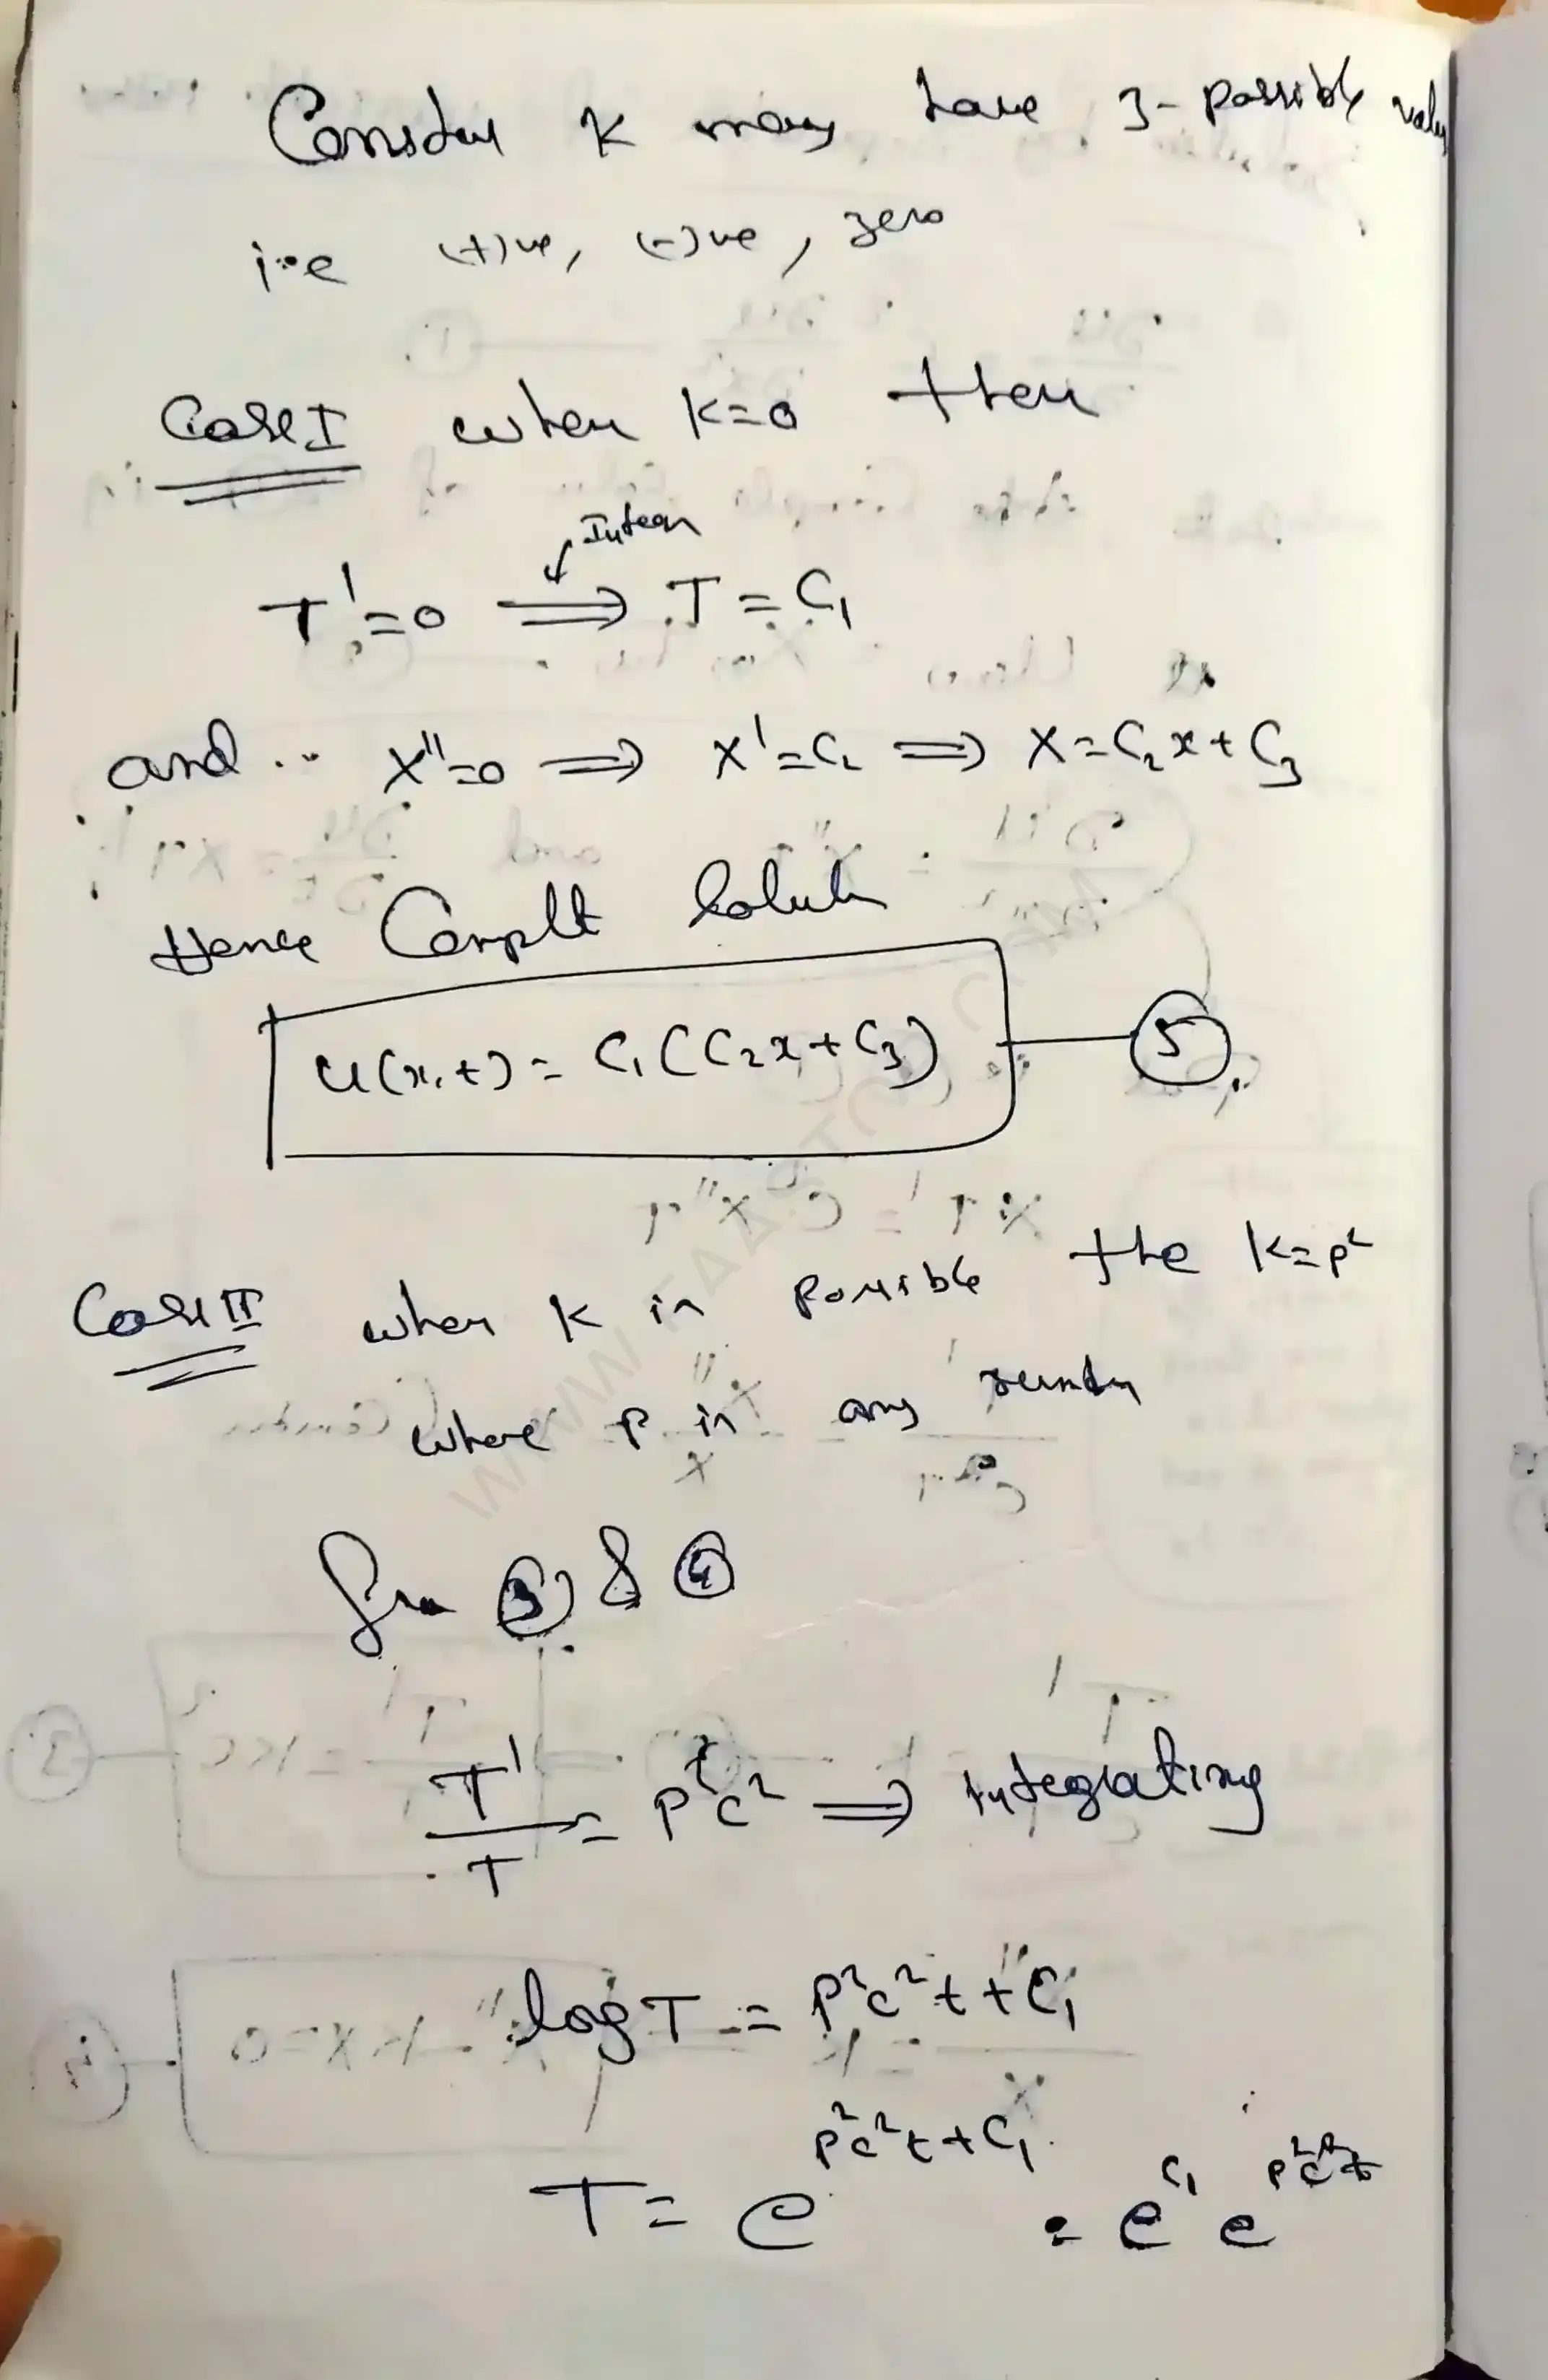 Consider K may have 3-possible value
i.e (+)ve, (-)ve, zero
Case I when K=0 then
Integ
T'=0 ⟹ T = C₁
and .. X''=0 ⟹ X'=C₂ ⟹ X=C₂x+C₃
Hence Complt Solut
u(x,t) = C₁(C₂x+C₃) — ⑤
Case II when K is possible the K=p²
where p is any number
from ③ & ④
T'/T = p²c² ⟹ Integrating
log T = p²c²t + C₁
T = e^(p²c²t+C₁) = e^(C₁) e^(p²c²t)